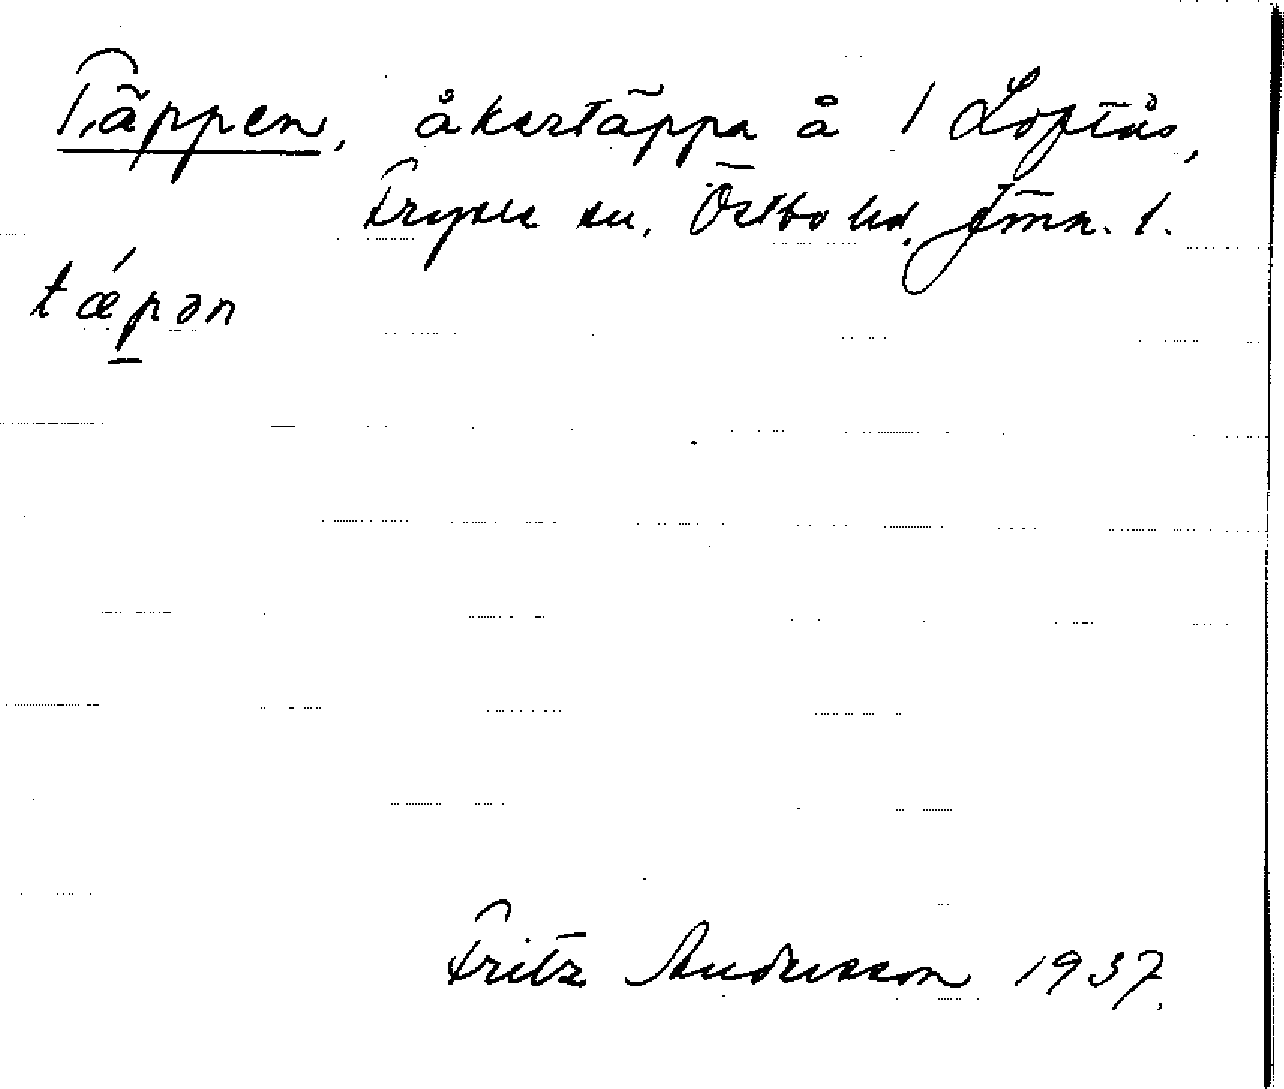 Täppen, åkertäppa å 1 Loftås,
Fryele sn, Östbo hd, Jönk. l.
tǽpən
Fritz Andersson 1937.